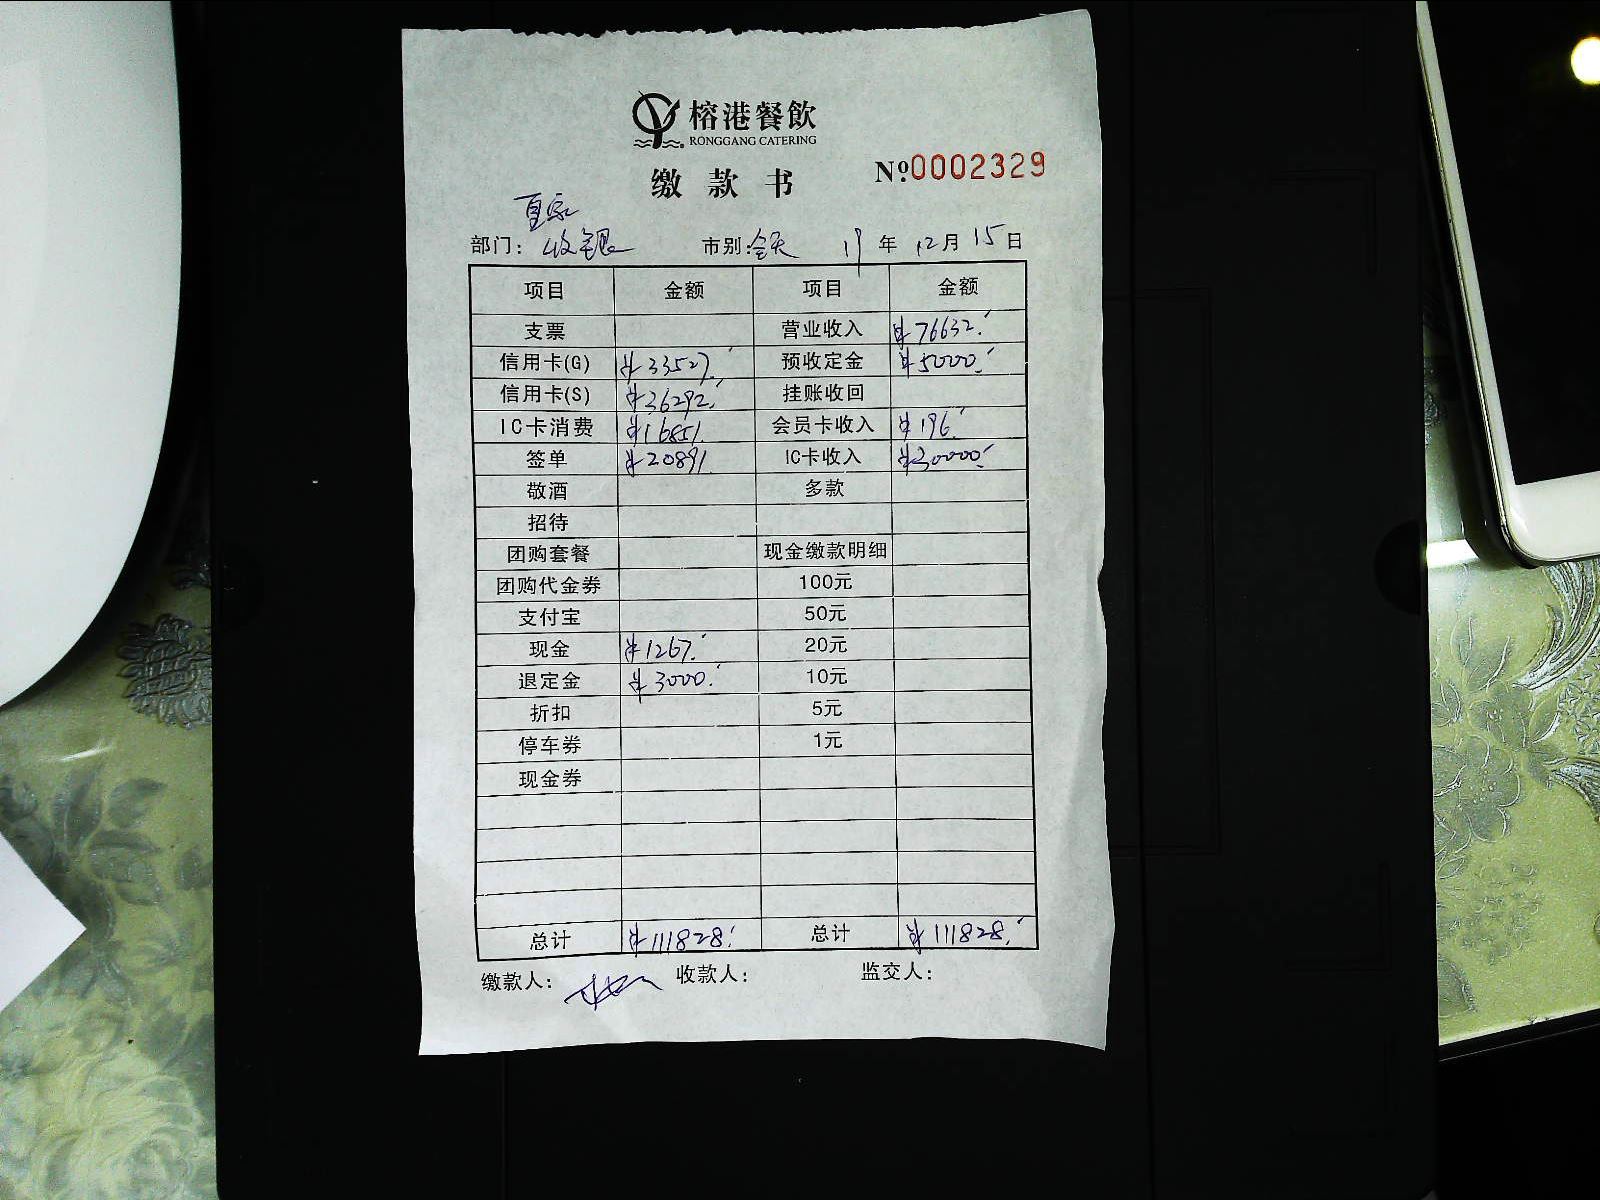 榕港餐飲
RONGGANG CATERING
缴款书 №0002329
部门: 收银 市别: 全天 19年12月15日
项目 金额 项目 金额
支票 营业收入 ¥76632.
信用卡(G) ¥33527. 预收定金 ¥5000.
信用卡(S) ¥36292. 挂账收回
IC卡消费 ¥16851. 会员卡收入 ¥196.
签单 ¥20891. IC卡收入 ¥30000.
敬酒 多款
招待
团购套餐 现金缴款明细
团购代金券 100元
支付宝 50元
现金 ¥1267. 20元
退定金 ¥3000. 10元
折扣 5元
停车券 1元
现金券
总计 ¥111828. 总计 ¥111828.
缴款人: 收款人: 监交人: